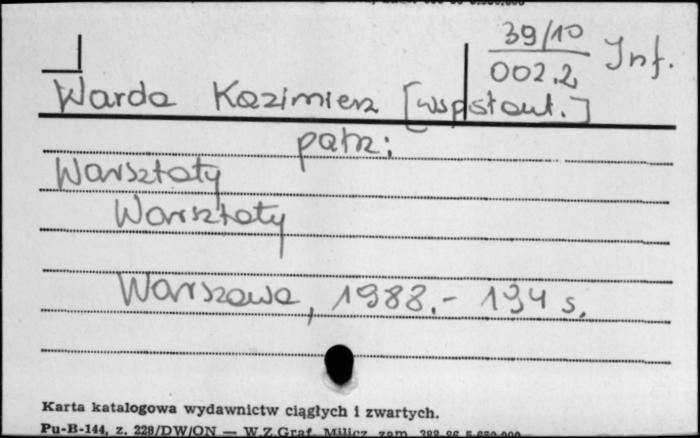 39/10
002.2 Inf.
Warda Kazimierz [wspłaut.]
patrz:
Warsztaty
Warsztaty
Warszawa, 1988.- 194 s.
Karta katalogowa wydawnictw ciągłych i zwartych.
Pu-B-144, z. 228/DW/ON — W.Z.Graf. Milicz, zam.